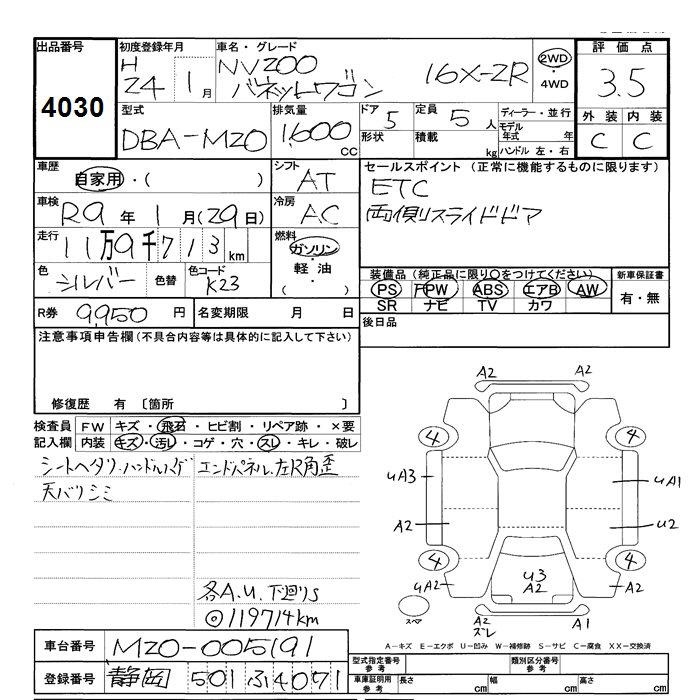 出品番号 初度登録年月 車名・グレード 評価点
4030 H 24 1月 NV200 バネットワゴン 16X-2R 2WD・4WD 3.5
型式 排気量 ドア 5 定員 5人 ディーラー・並行 外装 内装
DBA-M20 1,600 CC 形状 積載 kg モデル年式 年 ハンドル 左・右 C C
車歴 自家用・( ) シフト AT セールスポイント (正常に機能するものに限ります)
ETC
車検 R9年 1月(29日) 冷房 AC 両側スライドドア
走行 11万9千713km 燃料 ガソリン・軽油・( )
色 シルバー 色替 色コード K23
装備品 (純正品に限り○をつけてください) 新車保証書
PS PW ABS エアB AW 有・無
SR ナビ TV カワ
R券 9,950円 名変期限 月 日 後日品
注意事項申告欄(不具合内容等は具体的に記入して下さい)
修復歴 有 〔箇所 〕
検査員 FW キズ・飛石・ヒビ割・リペア跡・×要
記入欄 内装 キズ・汚レ・コゲ・穴・スレ・キレ・破レ
シートヘタリ・ハンドルハゲ エンドパネル、左R角歪
天バリシミ
各A.U、下廻りS
◎119714km
A2 A2
4 4
uA3 uA1
A2 u2
4 4
uA2 u3 A2 A2
スペア A2 ズレ A1
A-キズ E-エクボ U-凹み W-補修跡 S-サビ C-腐食 XX-交換済
車台番号 M20-005191 型式指定番号 参考 類別区分番号 参考
登録番号 静岡 501 ふ 4071 車庫証明用 参考 長さ cm 幅 cm 高さ cm